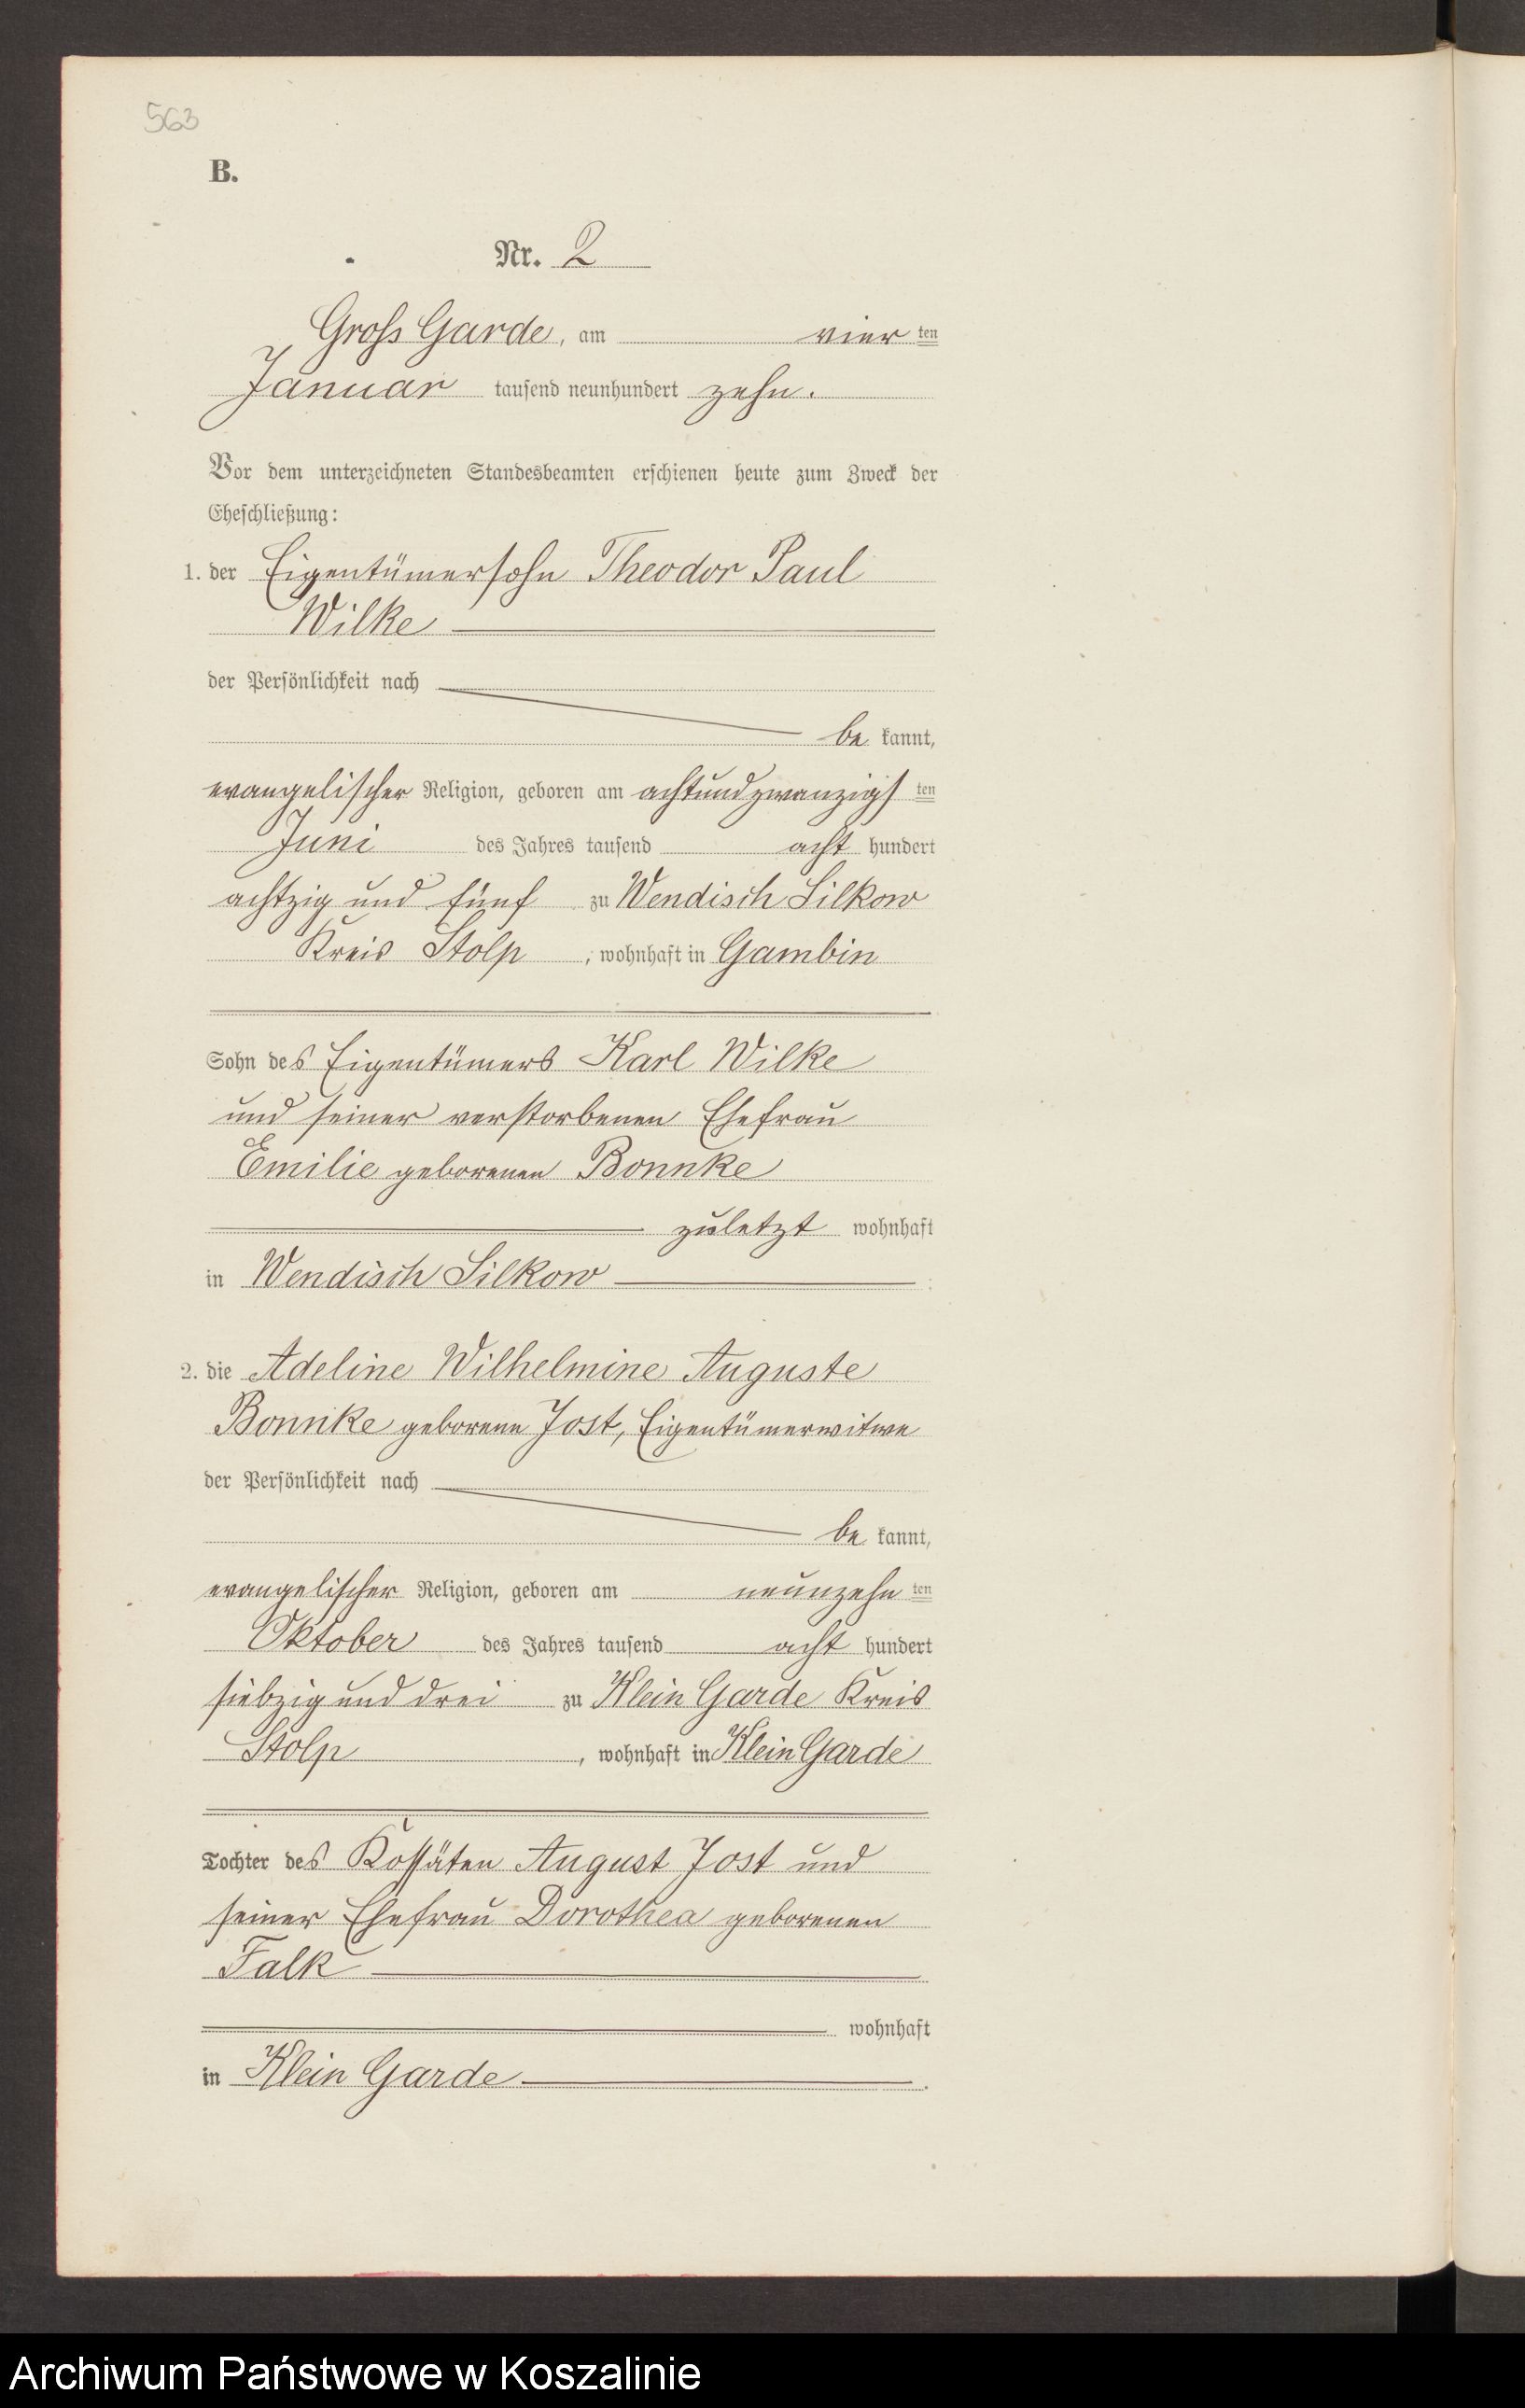 563
B.
Nr. 2
Gross Garde, am vier ten
Januar tausend neunhundert zehn.
Vor dem unterzeichneten Standesbeamten erschienen heute zum Zweck der
Eheschließung:
1. der Eigentümersohn Theodor Paul
Wilke
der Persönlichkeit nach
be kannt,
evangelischer Religion, geboren am achtundzwanzigs ten
Juni des Jahres tausend acht hundert
achtzig und fünf zu Wendisch Silkow
Kreis Stolp, wohnhaft in Gambin
Sohn des Eigentümers Karl Wilke
und seiner verstorbenen Ehefrau
Emilie geborenen Bonnke
zuletzt wohnhaft
in Wendisch Silkow ;
2. die Adeline Wilhelmine Auguste
Bonnke geborene Jost, Eigentümerwitwe
der Persönlichkeit nach
be kannt,
evangelischer Religion, geboren am neunzehn ten
Oktober des Jahres tausend acht hundert
siebzig und drei zu Klein Garde Kreis
Stolp, wohnhaft in Klein Garde
Tochter des Kossäten August Jost und
seiner Ehefrau Dorothea geborenen
Falk
wohnhaft
in Klein Garde.
Archiwum Państwowe w Koszalinie